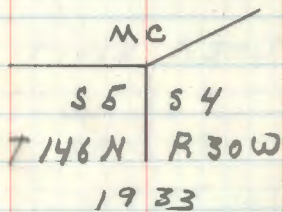 MC
S5 S4
T146N R30W
1933